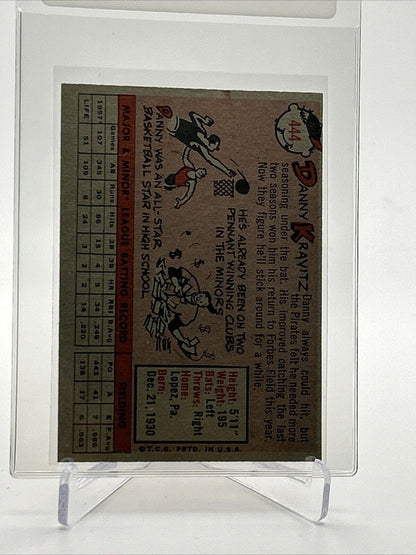 444
DANNY KRAVITZ
Danny always could hit, but
the Pirates felt he needed more
seasoning under the bat. His improved catching the last
two seasons won him his return to Forbes Field this year.
Now they figure he'll stick around for a while.
HE'S ALREADY BEEN ON TWO
PENNANT WINNING CLUBS
IN THE MINORS
DANNY WAS AN ALL-STAR
BASKETBALL STAR IN HIGH SCHOOL
Height: 5'11"
Weight: 195
Bats: Left
Throws: Right
Home:
Lopez, Pa.
Born:
Dec. 21, 1930
©T.C.G. PRTD. IN U.S.A.
MAJOR & MINOR LEAGUE BATTING RECORD FIELDING
Games AB Runs Hits 2B 3B HR RBI B.Avg PO A E F.Avg
1957 107 345 30 86 15 4 5 34 .249 443 41 7 .986
LIFE 51 109 8 24 3 2 2 14 .220 138 17 6 .963